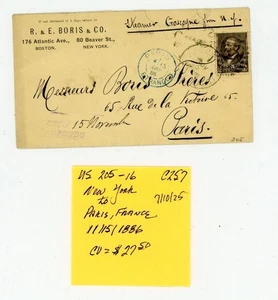 R. & E. BORIS & CO.
176 Atlantic Ave., 80 Beaver St.,
BOSTON. NEW YORK.
Steamer Gascogne from N. Y.
Messieurs Boris Frères
65 Rue de la Victoire 65
Paris.
15 Novemb
205
US 205-16 C257
New York 7/10/25
to
Paris, France
11/15/1886
CV = $27.50